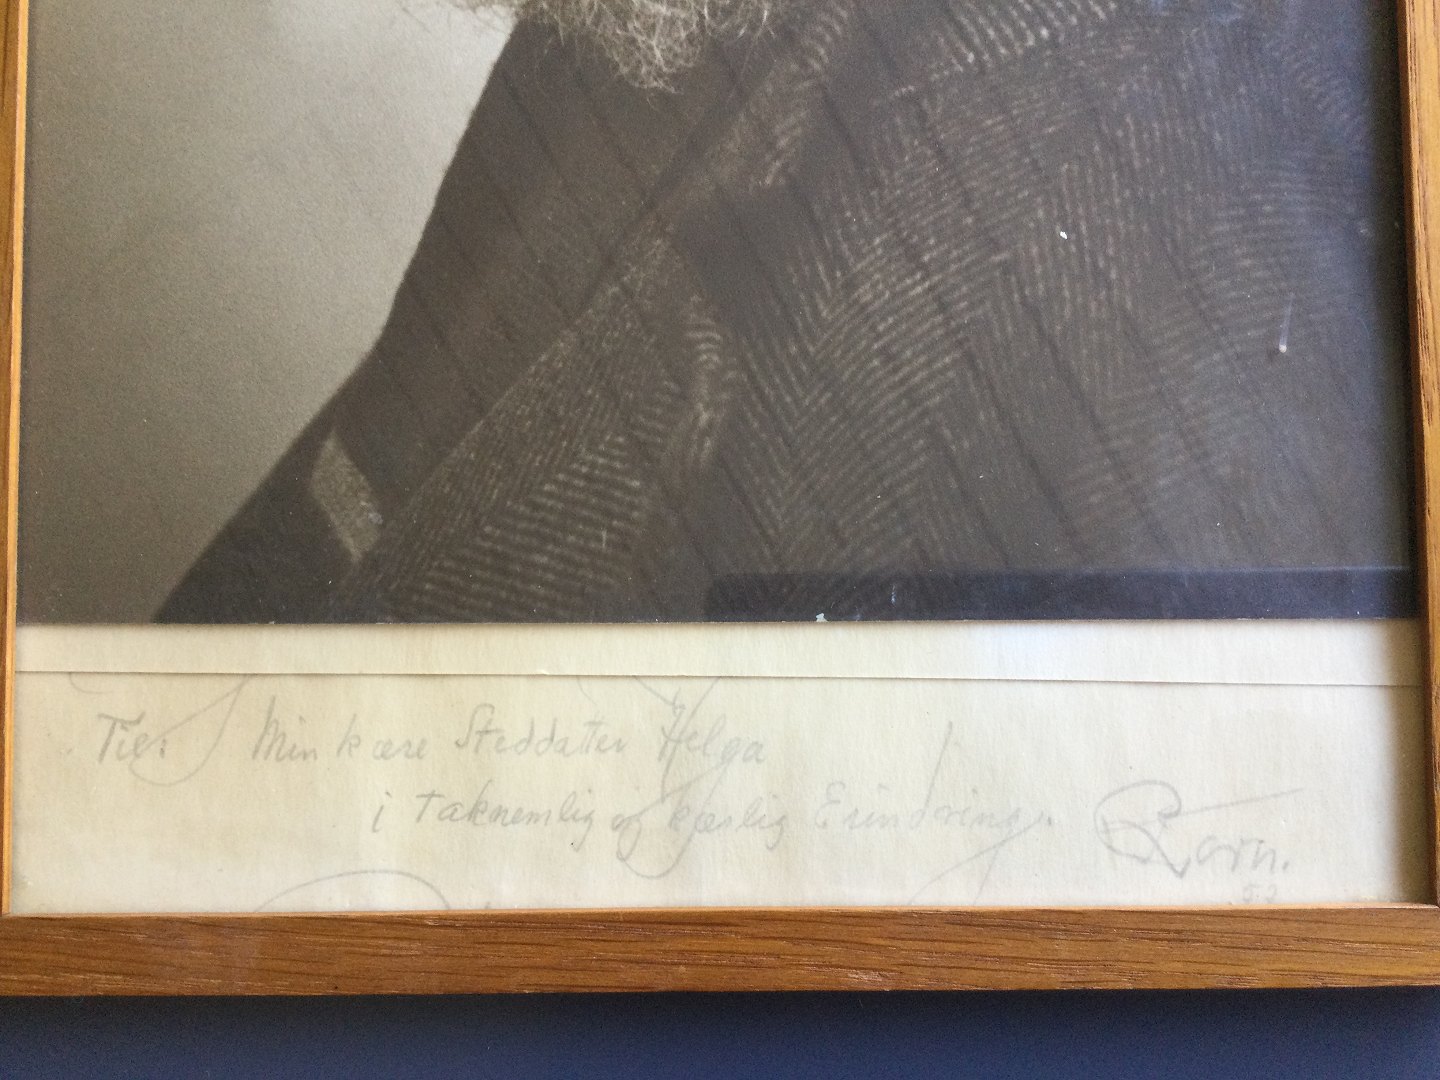 Til: Min kære Steddatter Helga
i taknemlig og kærlig Erindring.